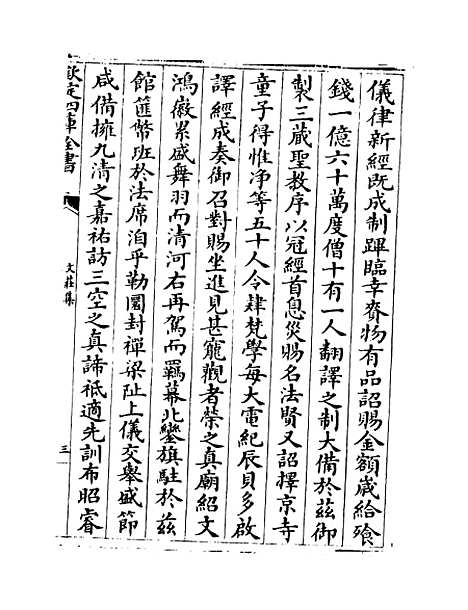 儀律新經既成制蹕臨幸賚物有品詔賜金額歳給飱
錢一億六十萬度僧十有一人翻譯之制大備於兹御
製三藏聖教序以冠經首息災賜名法賢又詔擇京寺
童子得惟净等五十人令肄梵學每大電紀辰貝多啟
譯經成奏御召對賜坐進見甚寵觀者榮之真廟紹文
鴻徽累盛舞羽而清河右再駕而羈幕北鑾旗駐於兹
館篚幣班於法席洎乎勒圜封禪梁阯上儀交舉盛節
咸備擁九清之嘉祐訪三空之真諦祗適先訓布昭睿
欽定四庫全書
文莊集
三